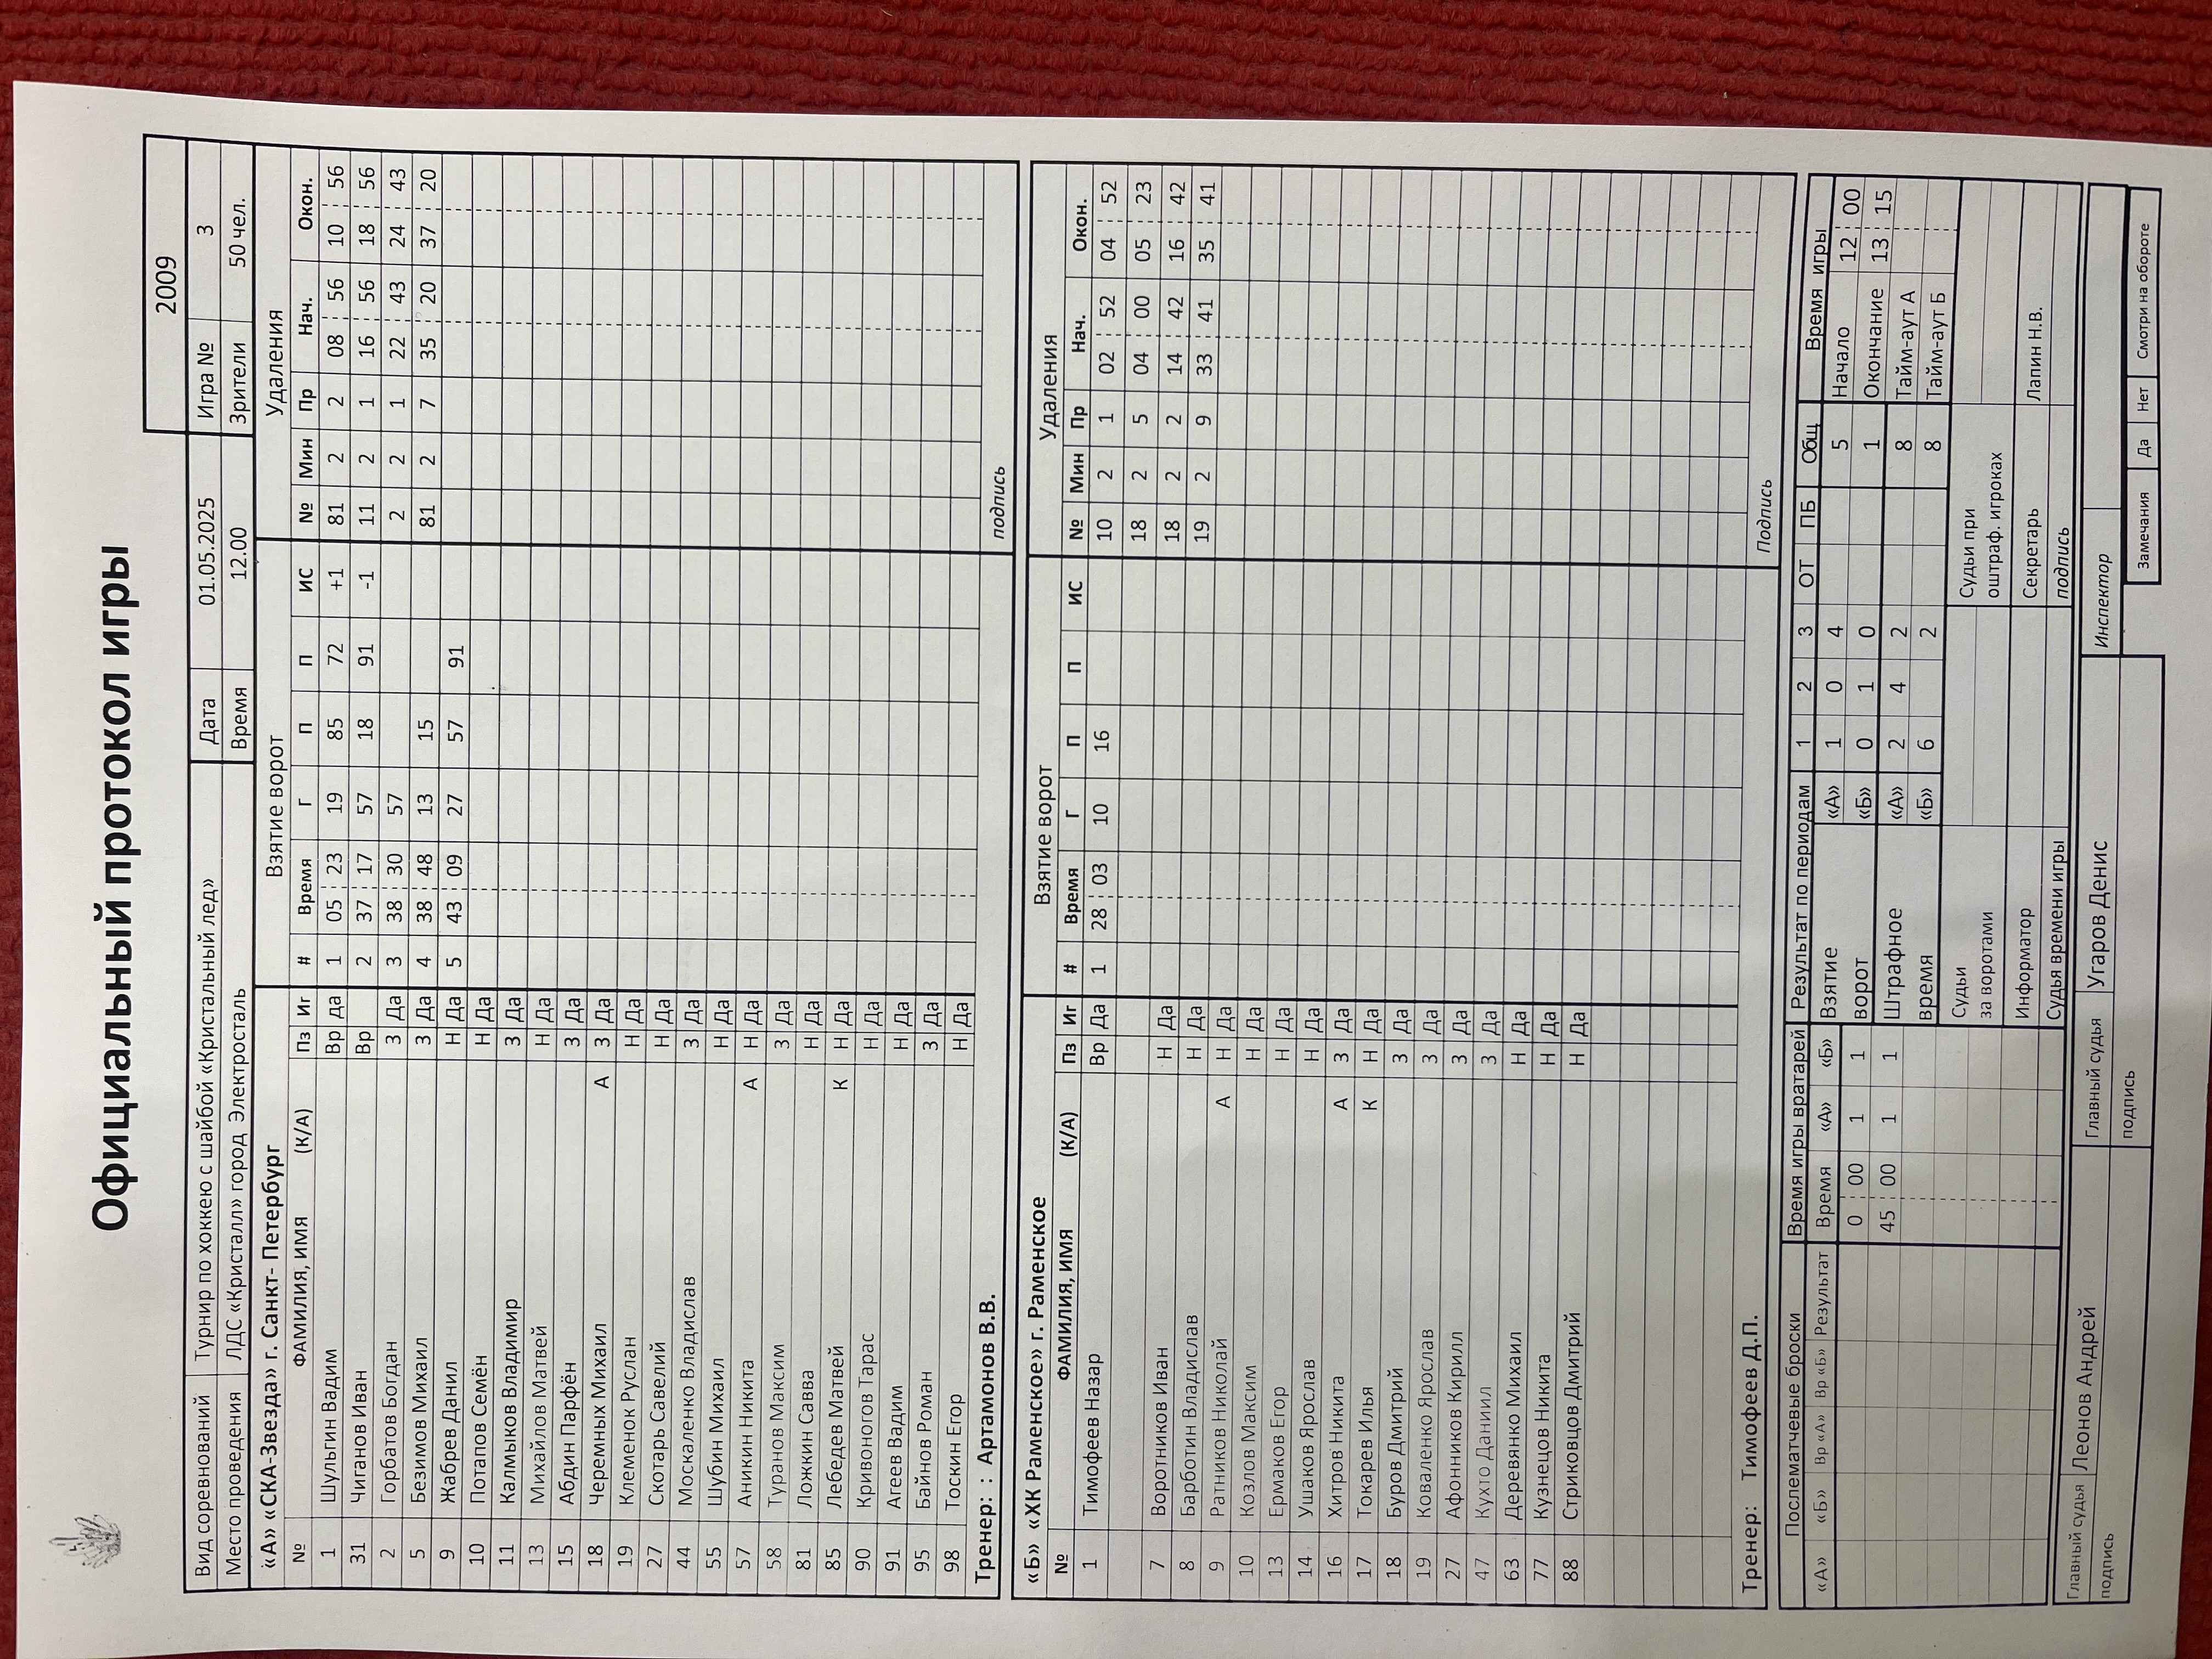 Официальный протокол игры
2009
Вид соревнований Турнир по хоккею с шайбой «Кристальный лед» Дата 01.05.2025 Игра № 3
Место проведения ЛДС «Кристалл» город Электросталь Время 12.00 Зрители 50 чел.
«А» «СКА-Звезда» г. Санкт- Петербург Взятие ворот Удаления
№ ФАМИЛИЯ, ИМЯ (К/А) Пз Иг # Время Г П П ИС № Мин Пр Нач. Окон.
1 Шульгин Вадим Вр Да 1 05 23 19 85 72 +1 81 2 2 08 56 10 56
31 Чиганов Иван Вр 2 37 17 57 18 91 -1 11 2 1 16 56 18 56
2 Горбатов Богдан З Да 3 38 30 57 2 2 1 22 43 24 43
5 Безимов Михаил З Да 4 38 48 13 15 81 2 7 35 20 37 20
9 Жабрев Данил Н Да 5 43 09 27 57 91
10 Потапов Семён Н Да
11 Калмыков Владимир З Да
13 Михайлов Матвей Н Да
15 Абдин Парфён З Да
18 Черемных Михаил А З Да
19 Клеменок Руслан Н Да
27 Скотарь Савелий Н Да
44 Москаленко Владислав З Да
55 Шубин Михаил Н Да
57 Аникин Никита А Н Да
58 Туранов Максим З Да
81 Ложкин Савва Н Да
85 Лебедев Матвей К Н Да
90 Кривоногов Тарас Н Да
91 Агеев Вадим Н Да
95 Байнов Роман З Да
98 Тоскин Егор Н Да
Тренер: : Артамонов В.В. подпись
«Б» «ХК Раменское» г. Раменское Взятие ворот Удаления
№ ФАМИЛИЯ, ИМЯ (К/А) Пз Иг # Время Г П П ИС № Мин Пр Нач. Окон.
1 Тимофеев Назар Вр Да 1 28 03 10 16 10 2 1 02 52 04 52
18 2 5 04 00 05 23
7 Воротников Иван Н Да 18 2 2 14 42 16 42
8 Барботин Владислав Н Да 19 2 9 33 41 35 41
9 Ратников Николай А Н Да
10 Козлов Максим Н Да
13 Ермаков Егор Н Да
14 Ушаков Ярослав Н Да
16 Хитров Никита А З Да
17 Токарев Илья К Н Да
18 Буров Дмитрий З Да
19 Коваленко Ярослав З Да
27 Афонников Кирилл З Да
47 Кухто Даниил З Да
63 Деревянко Михаил Н Да
77 Кузнецов Никита Н Да
88 Стриковцов Дмитрий Н Да
Тренер: Тимофеев Д.П. Подпись
Послематчевые броски Время игры вратарей Результат по периодам 1 2 3 ОТ ПБ Общ Время игры
«А» «Б» Вр «А» Вр «Б» Результат Время «А» «Б» Взятие «А» 1 0 4 5 Начало 12 00
0 00 1 1 ворот «Б» 0 1 0 1 Окончание 13 15
45 00 1 1 Штрафное «А» 2 4 2 8 Тайм-аут А
время «Б» 6 2 8 Тайм-аут Б
Судьи за воротами Судьи при оштраф. игроках
Информатор Секретарь Лапин Н.В.
Судья времени игры подпись
Главный судья Леонов Андрей Главный судья Угаров Денис Инспектор
подпись подпись Замечания Да Нет Смотри на обороте